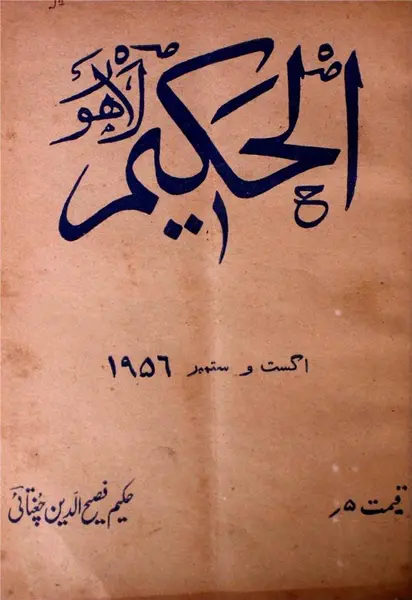 الحکیم لاہور
اگست و ستمبر ۱۹۵۶
قیمت ۵ ر
حکیم فصیح الدین چغتائی